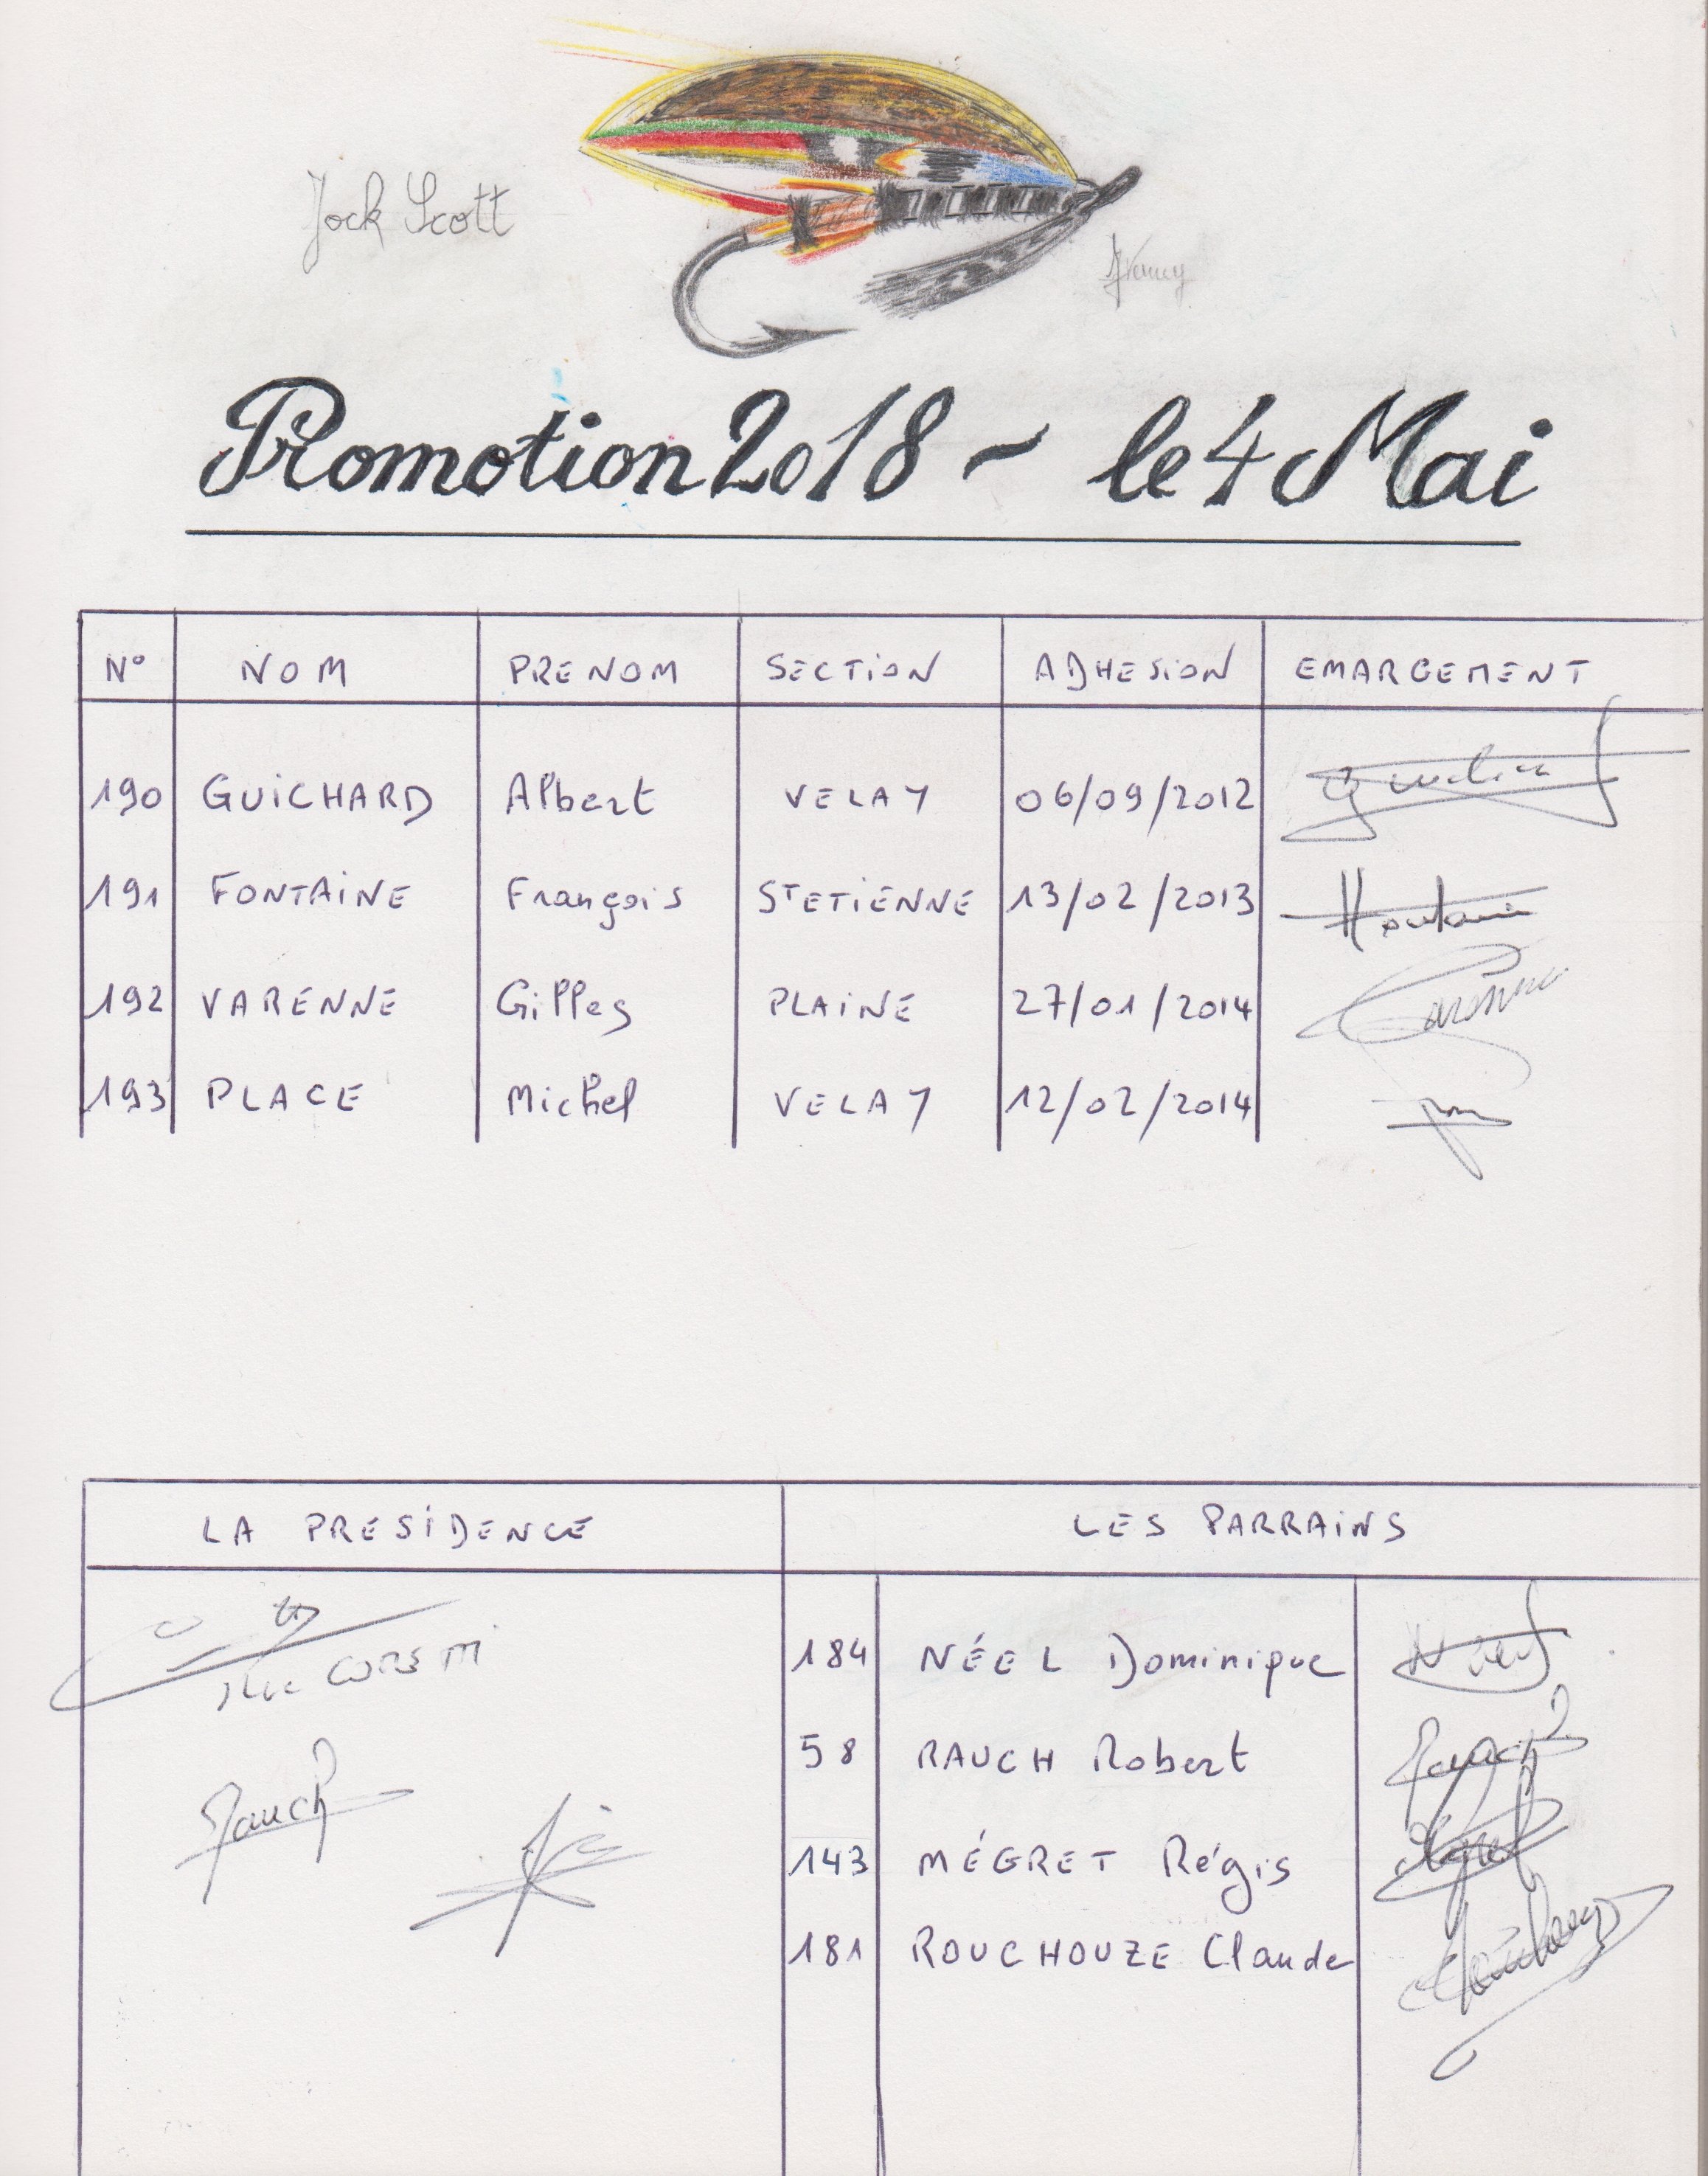 Jock Scott
Promotion 2018 ~ le 4 Mai
N° NOM PRENOM SECTiON ADHESiON EMARGEMENT
190 GUiCHARD Albert VELAY 06/09/2012
191 FONTAiNE François STETiENNE 13/02/2013
192 VARENNE Gilles PLAiNE 27/01/2014
193 PLACE Michel VELAY 12/02/2014
LA PRESiDENCE LES PARRAiNS
184 NÉEL Dominique
58 RAUCH Robert
Rauch
143 MÉGRET Régis
181 ROUCHOUZE Claude